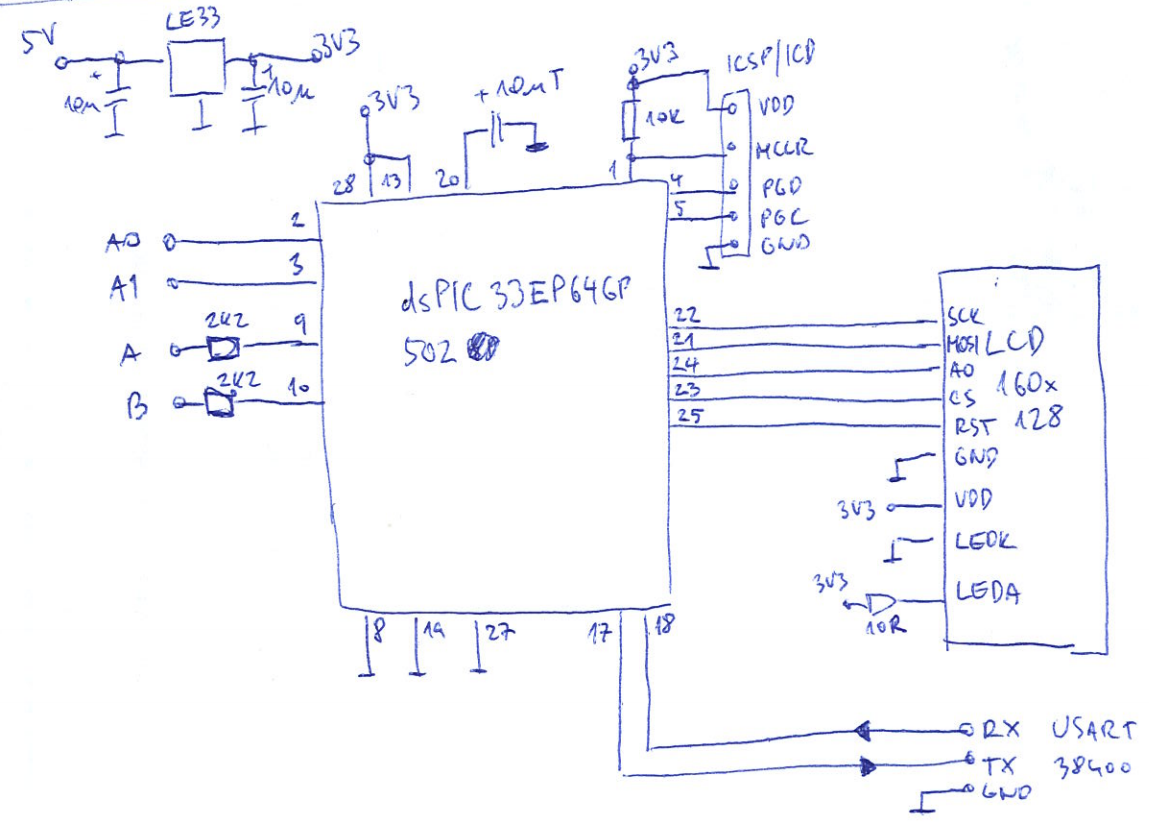 LE33
5V
3V3
+
10µ
+
10µ
3V3
+ 10µT
3V3
ICSP/ICD
10K
VDD
MCLR
PGD
PGC
GND
28
13
20
1
4
5
A0
2
A1
3
A
2K2
9
B
2K2
10
dsPIC 33EP64GP
502
22
21
24
23
25
SCK
MOSI
A0
CS
RST
GND
VDD
LEDK
LEDA
LCD
160x
128
3V3
3V3
10R
8
19
27
17
18
RX USART
TX 38400
GND